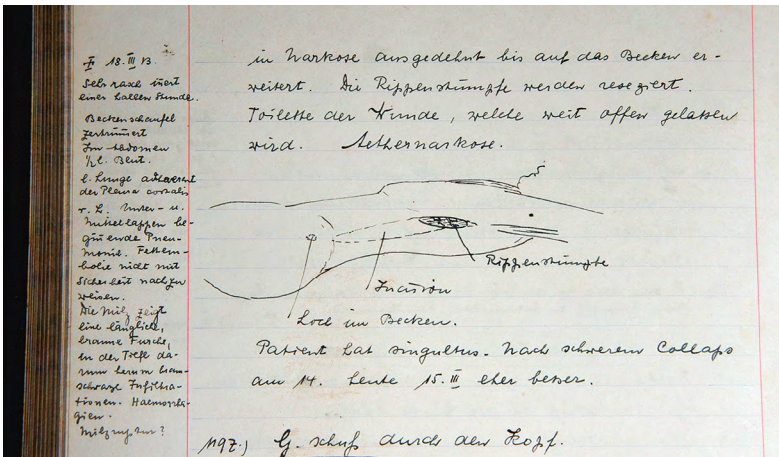 18. III 13.
Sehr rasch inert
einer halben Stunde.
Beckenschaufel
zertrümert
Im Abdomen
½ l. Blut.
l. Lunge adhaerent
der Pleura costalis
r. L. Unter- u.
Mittellappen be-
ginnende Pneu-
monie. Fettem-
bolie nicht mit
Sicherheit nachzu
weisen.
Die Milz zeigt
eine längliche,
braune Furche,
in der Tiefe da-
rum herum
schwarze Infiltra-
tionen. Haemorrha-
gien.
Milzruptur?
in Narkose ausgedehnt bis auf das Becken er-
weitert. Die Rippenstümpfe werden reseziert.
Toilette der Wunde, welche weit offen gelassen
wird. Aethernarkose.
Rippenstümpfe
Incision
Loch im Becken.
Patient hat singultus. Nach schwerem Collaps
am 14. heute 15. III eher besser.
1197.) G. schuß durch den Kopf.